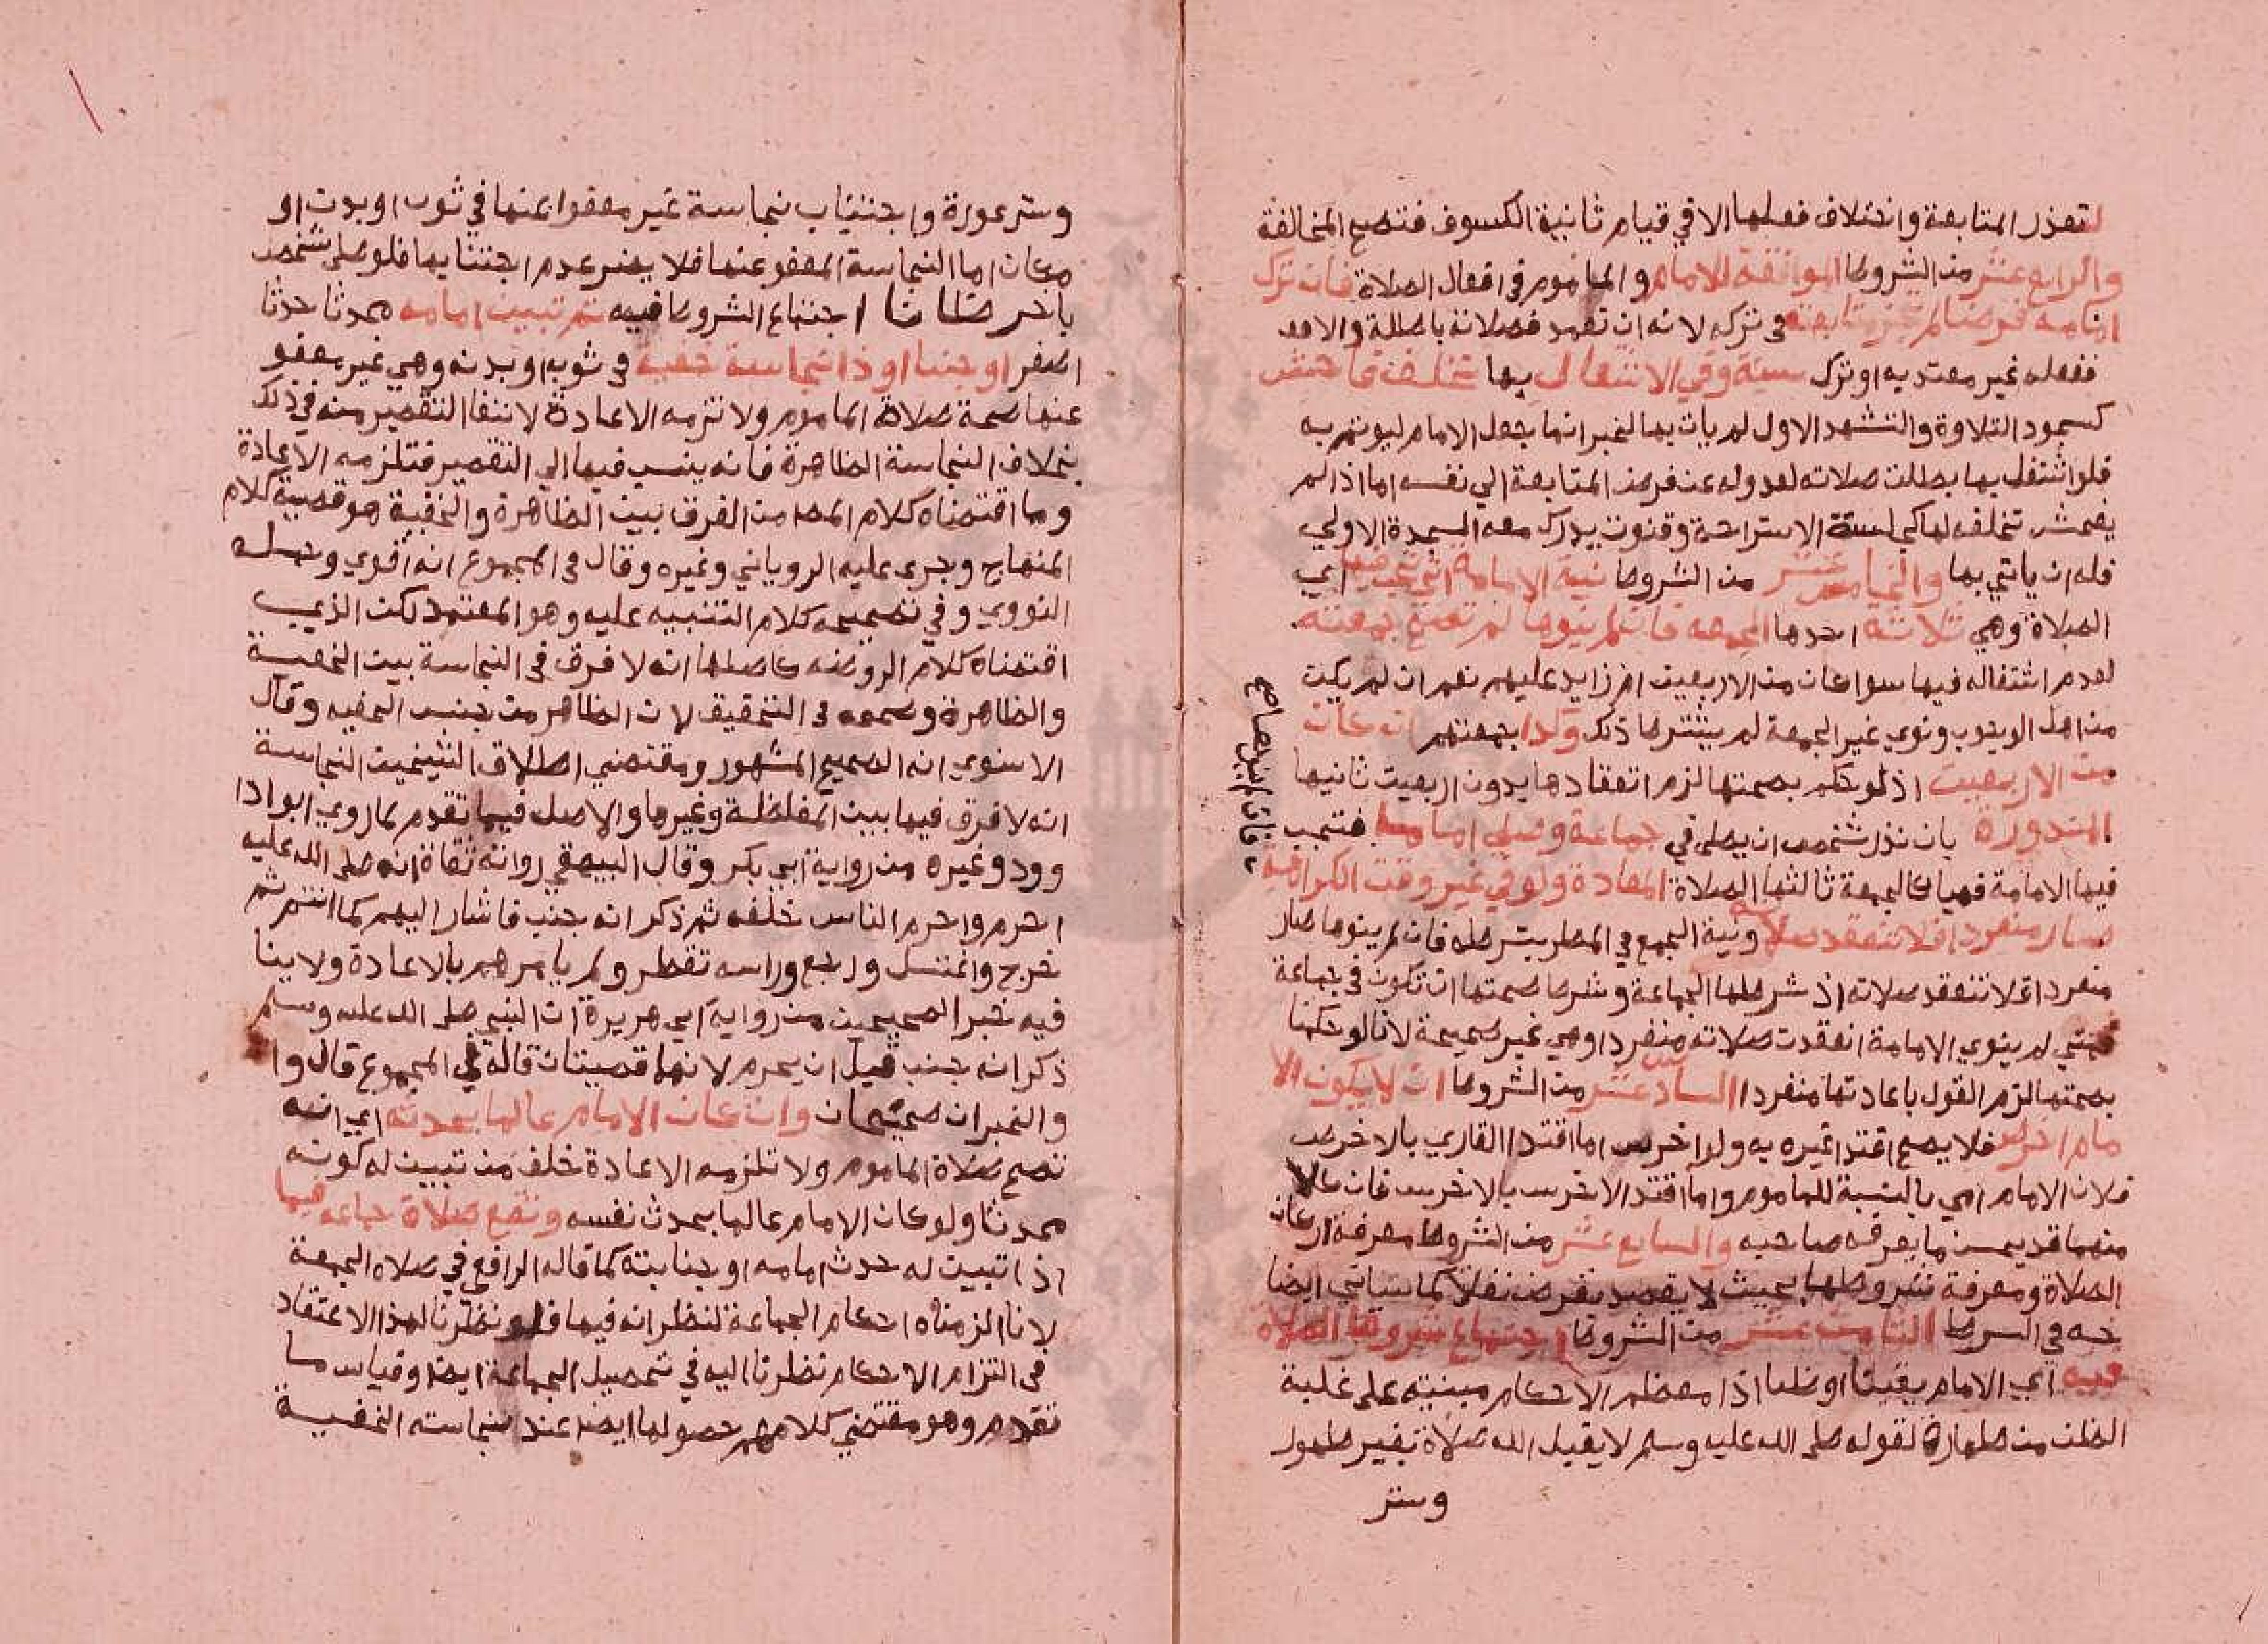 لتعذر المتابعة واختلاف فعلها الا في قيام ثانية الكسوف فتصح المخالفة
والرابع عشر من الشروط الموافقة للامام والماموم في افعال الصلاة فان ترك
امامه فرضا لم يجز متابعته في تركه لانه ان تعمد فصلاته باطلة والا فعد
ففعله غير معتد به او ترك سنة وفي الاشتغال بها تخلف فاحش
كسجود التلاوة والتشهد الاول لم يات بها لخبر انما جعل الامام ليوتم به
فلو اشتغل بها بطلت صلاته لعدوله عن فرض المتابعة الي نفسه اما اذا لم
يفحش تخلفه لها كجلسة الاستراحة وقنوت يدرك معه السجدة الاولي
فله ان ياتي بها والخامس عشر من الشروط نية الامامة التي تجب فيها اي
الصلاة وهي ثلاثة احدها الجمعة فان لم ينوها لم تصح جمعته
لعدم اشتغاله فيها سوا كان من الاربعين ام زايد عليهم نعم ان لم يكن
من اهل الوجوب ونوي غير الجمعة لم يشترط ذلك وكذا جمعتهم ان كان
من الاربعين اذ لو حكم بصحتها لزم انعقادها بدون اربعين ثانيها
المنذورة بان نذر شخص ان يصلي في جماعة وصلي اماما فتجب
فيها الامامة فهي كالجمعة ثالثها الصلاة المعادة ولو في غير وقت الكراهة
صار منفردا فلا تنعقد صلاته ونية الجمع في المطر بشرطه فان لم ينوها صار
منفردا فلا تنعقد صلاته اذ شرطها الجماعة وشرط صحتها ان تكون في جماعة
فمتي لم ينوي الامامة انعقدت صلاته منفردا وهي غير صحيحة لانا لو حكمنا
بصحتها لزم القول باعادتها منفردا السادس عشر من الشروط ان لا يكون الا
مام اخرس فلا يصح اقتدا غيره به ولو اخرس اما اقتدا القاري بالاخرس
فلان الامام امي بالنسبة للماموم واما اقتدا الاخرس بالاخرس فان كلا
منهما قد يحسن ما يعرفه صاحبه والسابع عشر من الشروط معرفة اركان
الصلاة ومعرفة شروطها بحيث لا يقصد بفرض نفلا كما سياتي ايضا
في الشرط الثامن عشر من الشروط اجتماع شروط الصلاة
فيه اي الامام يقينا او ظنا اذا معظم الاحكام مبنية على غلبة
الظن من طهارة لقوله صلى الله عليه وسلم لا يقبل الله صلاة بغير طهور
وستر
فاقام ابن الصباغ
وستر عورة واجتناب نجاسة غير معفوا عنها في ثوب او بدن او
مكان اما النجاسة المعفو عنها فلا يضر عدم اجتنابها فلو صلى شخص
باخر ظانا اجتماع الشروط فيه ثم تبين امامه محدثا حدثا
اصغر او جنبا او ذا نجاسة خفية في ثوبه او بدنه وهي غير معفو
عنها صحة صلاة الماموم ولا تلزمه الاعادة لانتفا التقصير منه في ذلك
بخلاف النجاسة الظاهرة فانه ينسب فيها الي التقصير فتلزمه الاعادة
وما اقتضاه كلام المص من الفرق بين الظاهرة والخفية هو قضية كلام
المنهاج وجري عليه الروياني وغيره وقال في المجموع انه اقوي
النووي وفي تصحيحه كلام التنبيه عليه وهو المعتمد لكن الذي
اقتضاه كلام الروضه كاصلها انه لا فرق في النجاسة بين الخفية
والظاهرة وصححه في التحقيق لان الظاهر من جنس الخفيه وقال
الاسنوي انه الصحيح المشهور ومقتضي اطلاق الشيخين النجاسة
انه لا فرق فيها بين المغلظة وغيرها والاصل فيما تقدم لما روي ابو ادا
وود وغيره من رواية ابي بكر وقال البيهقي رواته ثقاة انه صلى الله عليه
احرم واحرم الناس خلفه ثم ذكر انه جنب فاشار اليهم كما انتم ثم
خرج واغتسل ورجع وراسه تقطر ولم يامرهم بالاعادة ولا ينا
فيه خبر الصحيحين من رواية ابي هريرة ان النبي صلى الله عليه وسلم
ذكر انه جنب قبل ان يحرم لانهما قضيتان قاله في المجموع قال وا
والخبران صحيحان وان كان الامام عالما بحدثه اي انه
تصح صلاة الماموم ولا تلزمه الاعادة خلف من تبين له كونه
محدثا ولو كان الامام عالما بحدث نفسه وتقع صلاة جماعه فيما
اذا تبين له حدث امامه او جنابته كما قاله الرافعي في صلاه الجمعة
لانا الزمناه احكام الجماعة لنظر انه فيها فلو نظرنا لهذا الاعتقاد
في التزام الاحكام نظرنا اليه في تحصيل الجماعة ايضا وقياس ما
تقدم وهو مقتضي كلامهم حصولها ايضا عند نجاسته الخفية